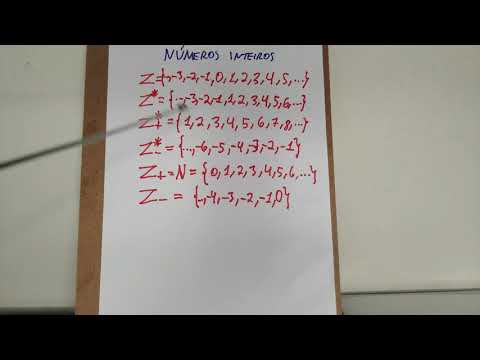 NÚMEROS INTEIROS
Z={..,-3,-2,-1,0,1,2,3,4,5,...}
Z*={..,-3,-2,-1,1,2,3,4,5,6,...}
Z*+={1,2,3,4,5,6,7,8,...}
Z*-={...,-6,-5,-4,-3,-2,-1}
Z+=N={0,1,2,3,4,5,6,...}
Z-={..,-4,-3,-2,-1,0}